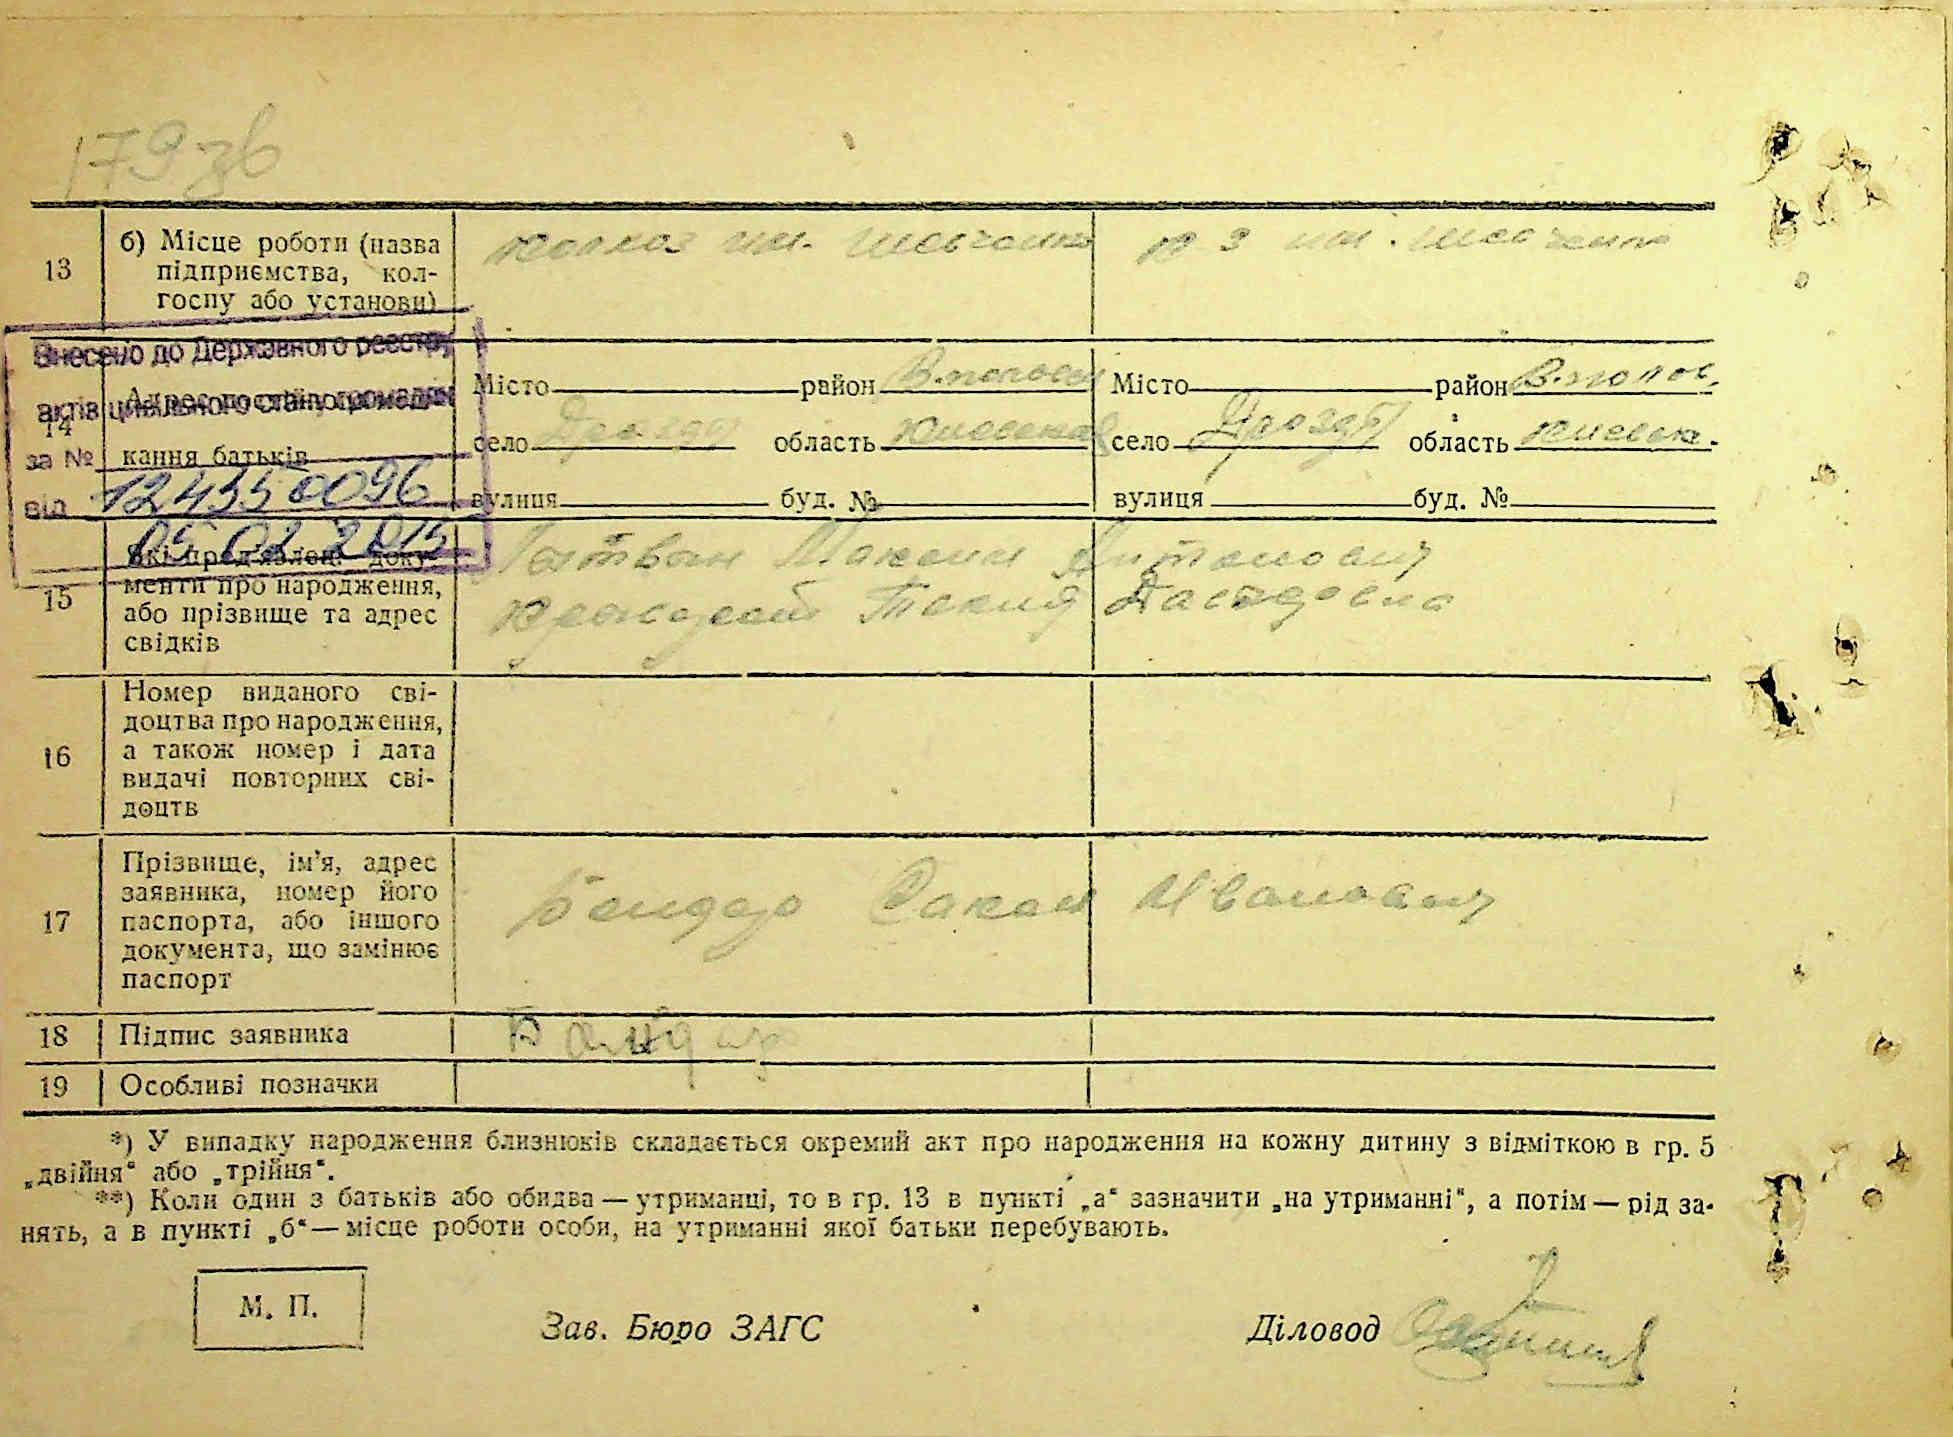 179 зв
13
б) Місце роботи (назва
підприємства, кол-
госпу або установи)
колхоз им. Шевченко
к з им. Шевченко
Внесено до Державного реєстру
актів цивільного стану громадян
за № 1243550096
від 05 02 2015
14
Адрес постійного
кання батьків
Місто район В.-половец
село Дрозды область Киевская
вулиця буд. №
Місто район В.-полов.
село Дрозды область Киевск.
вулиця буд. №
15
Які пред'явлені доку-
менти про народження,
або прізвище та адрес
свідків
Максим Антонович
Текля Давидовна
16
Номер виданого сві-
доцтва про народження,
а також номер і дата
видачі повторних сві-
доцтв
17
Прізвище, ім'я, адрес
заявника, номер його
паспорта, або іншого
документа, що замінює
паспорт
Бендер Иванович
18
Підпис заявника
19
Особливі позначки
*) У випадку народження близнюків складається окремий акт про народження на кожну дитину з відміткою в гр. 5
„двійня“ або „трійня“.
**) Коли один з батьків або обидва — утриманці, то в гр. 13 в пункті „а“ зазначити „на утриманні“, а потім — рід за-
нять, а в пункті „б“ — місце роботи особи, на утриманні якої батьки перебувають.
М. П.
Зав. Бюро ЗАГС
Діловод